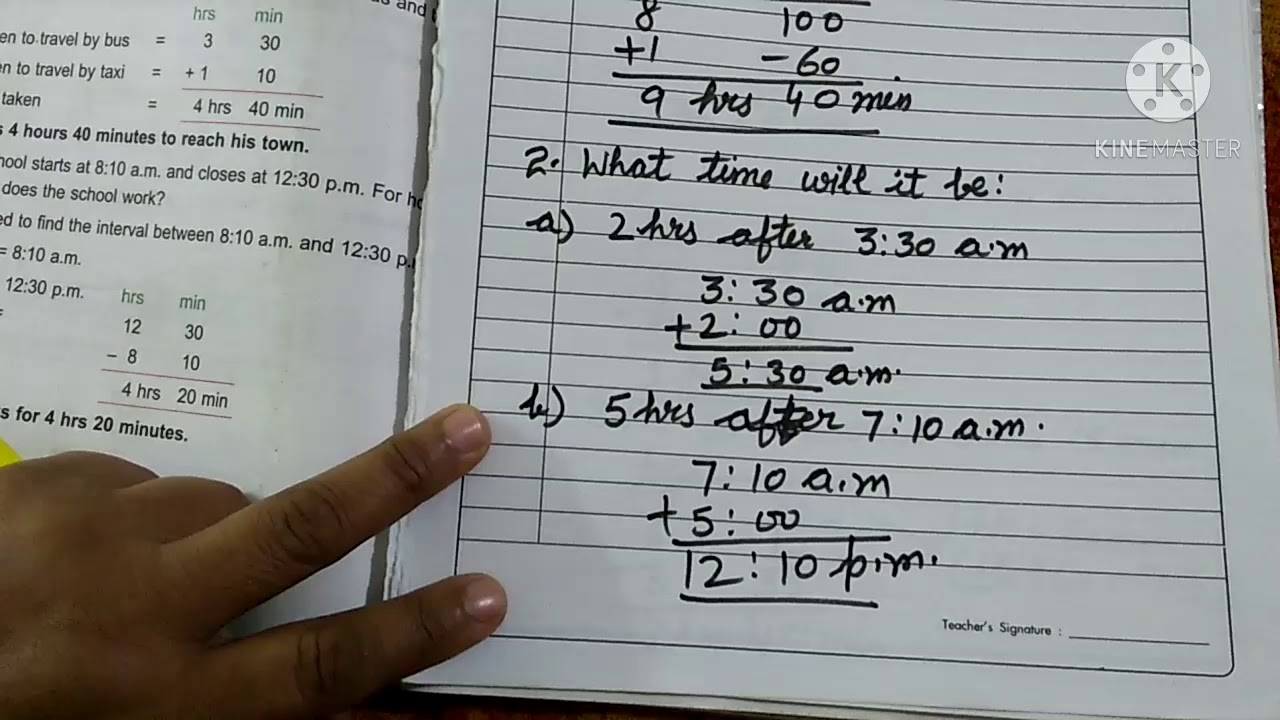 and
hrs min
en to travel by bus = 3 30
en to travel by taxi = + 1 10
taken = 4 hrs 40 min
s 4 hours 40 minutes to reach his town.
hool starts at 8:10 a.m. and closes at 12:30 p.m. For ho
does the school work?
ed to find the interval between 8:10 a.m. and 12:30 p.
= 8:10 a.m.
12:30 p.m. hrs min
= 12 30
– 8 10
4 hrs 20 min
s for 4 hrs 20 minutes.
8 100
+1 -60
9 hrs 40 min
2. What time will it be:
a) 2 hrs after 3:30 a.m
3:30 a.m
+2:00
5:30 a.m.
b) 5 hrs after 7:10 a.m.
7:10 a.m
+5:00
12:10 p.m.
Teacher's Signature :
K
KINEMASTER